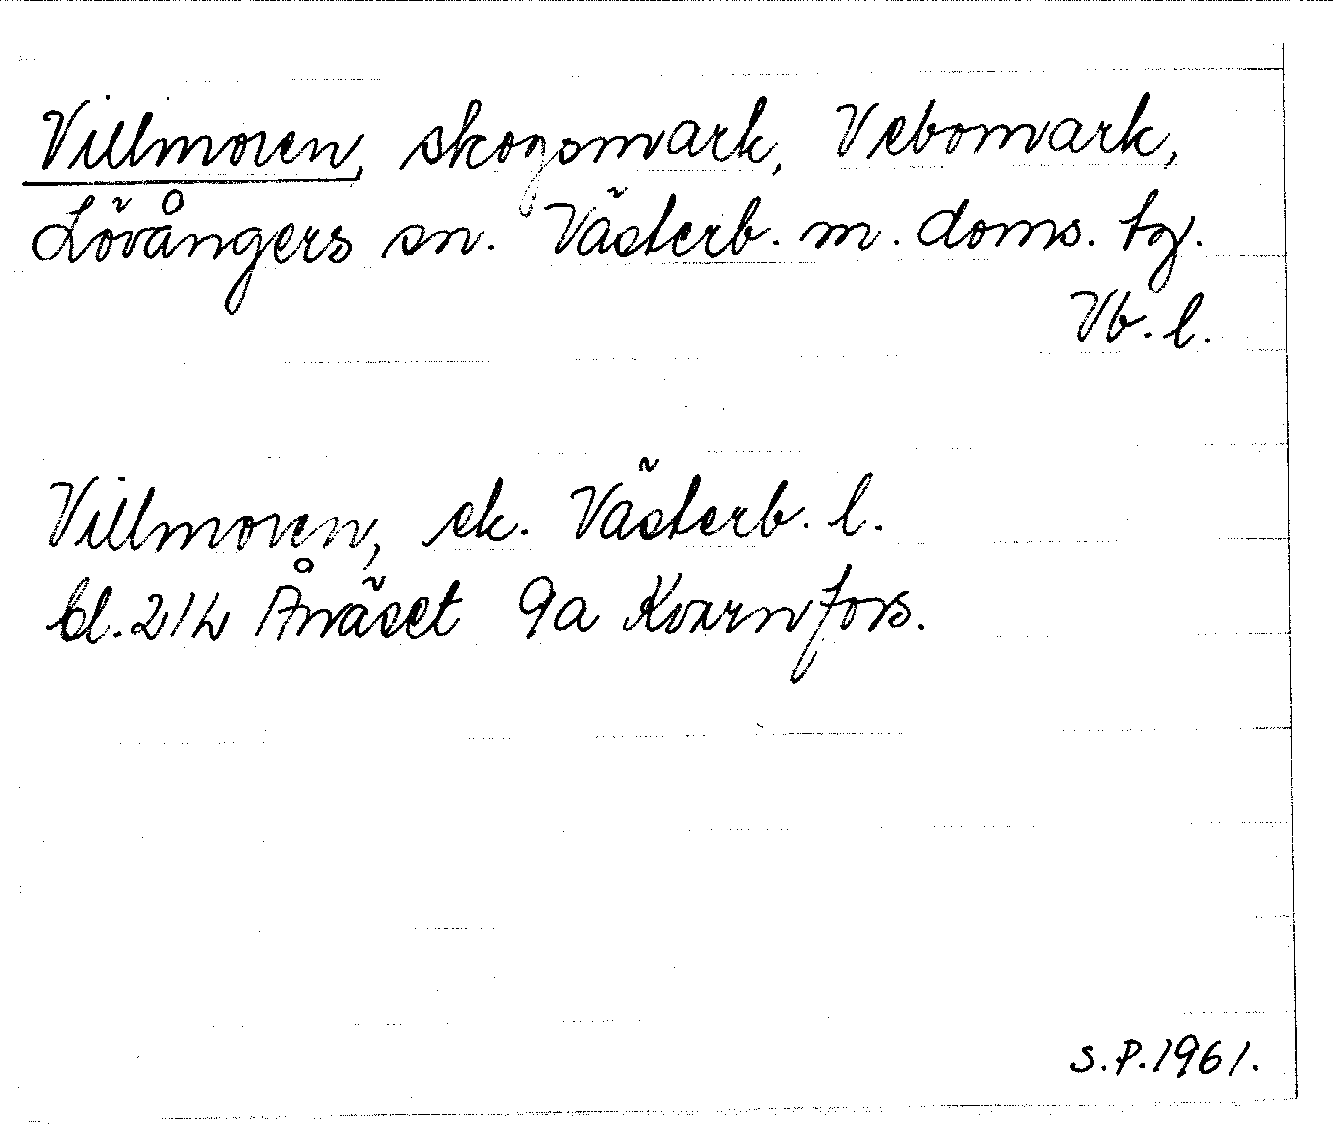 Villmoren, skogsmark, Vebomark,
Lövångers sn. Västerb. m. doms. tg.
Vb. l.
Villmoren, ek. Västerb. l.
bl. 21L Ånäset 9a Kvarnfors.
S.P. 1961.